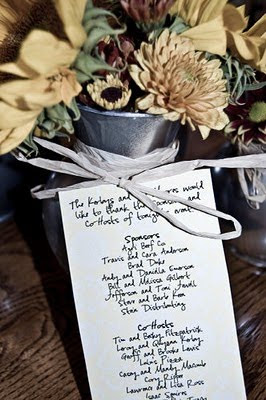 The Kerbys and
would
like to thank the
and
Co-Hosts of tonight's event.
Sponsors
Beef Co
Travis and Cara Anderson
Brad Duke
Andy and Danella Emerson
Bill and Melissa Gilbert
Jefferson and Toni Jewell
Starr and Barb Kern
Stein Distributing
Co-Hosts
Tim and Becky Fitzpatrick
Leroy and Quilyann Kerby
Geoff and Brooke Lewis
Lulu's Pizza
Casey and Mandy Macomb
Cory Ripper
Laurence and Lisa Ross
Isaac Squires